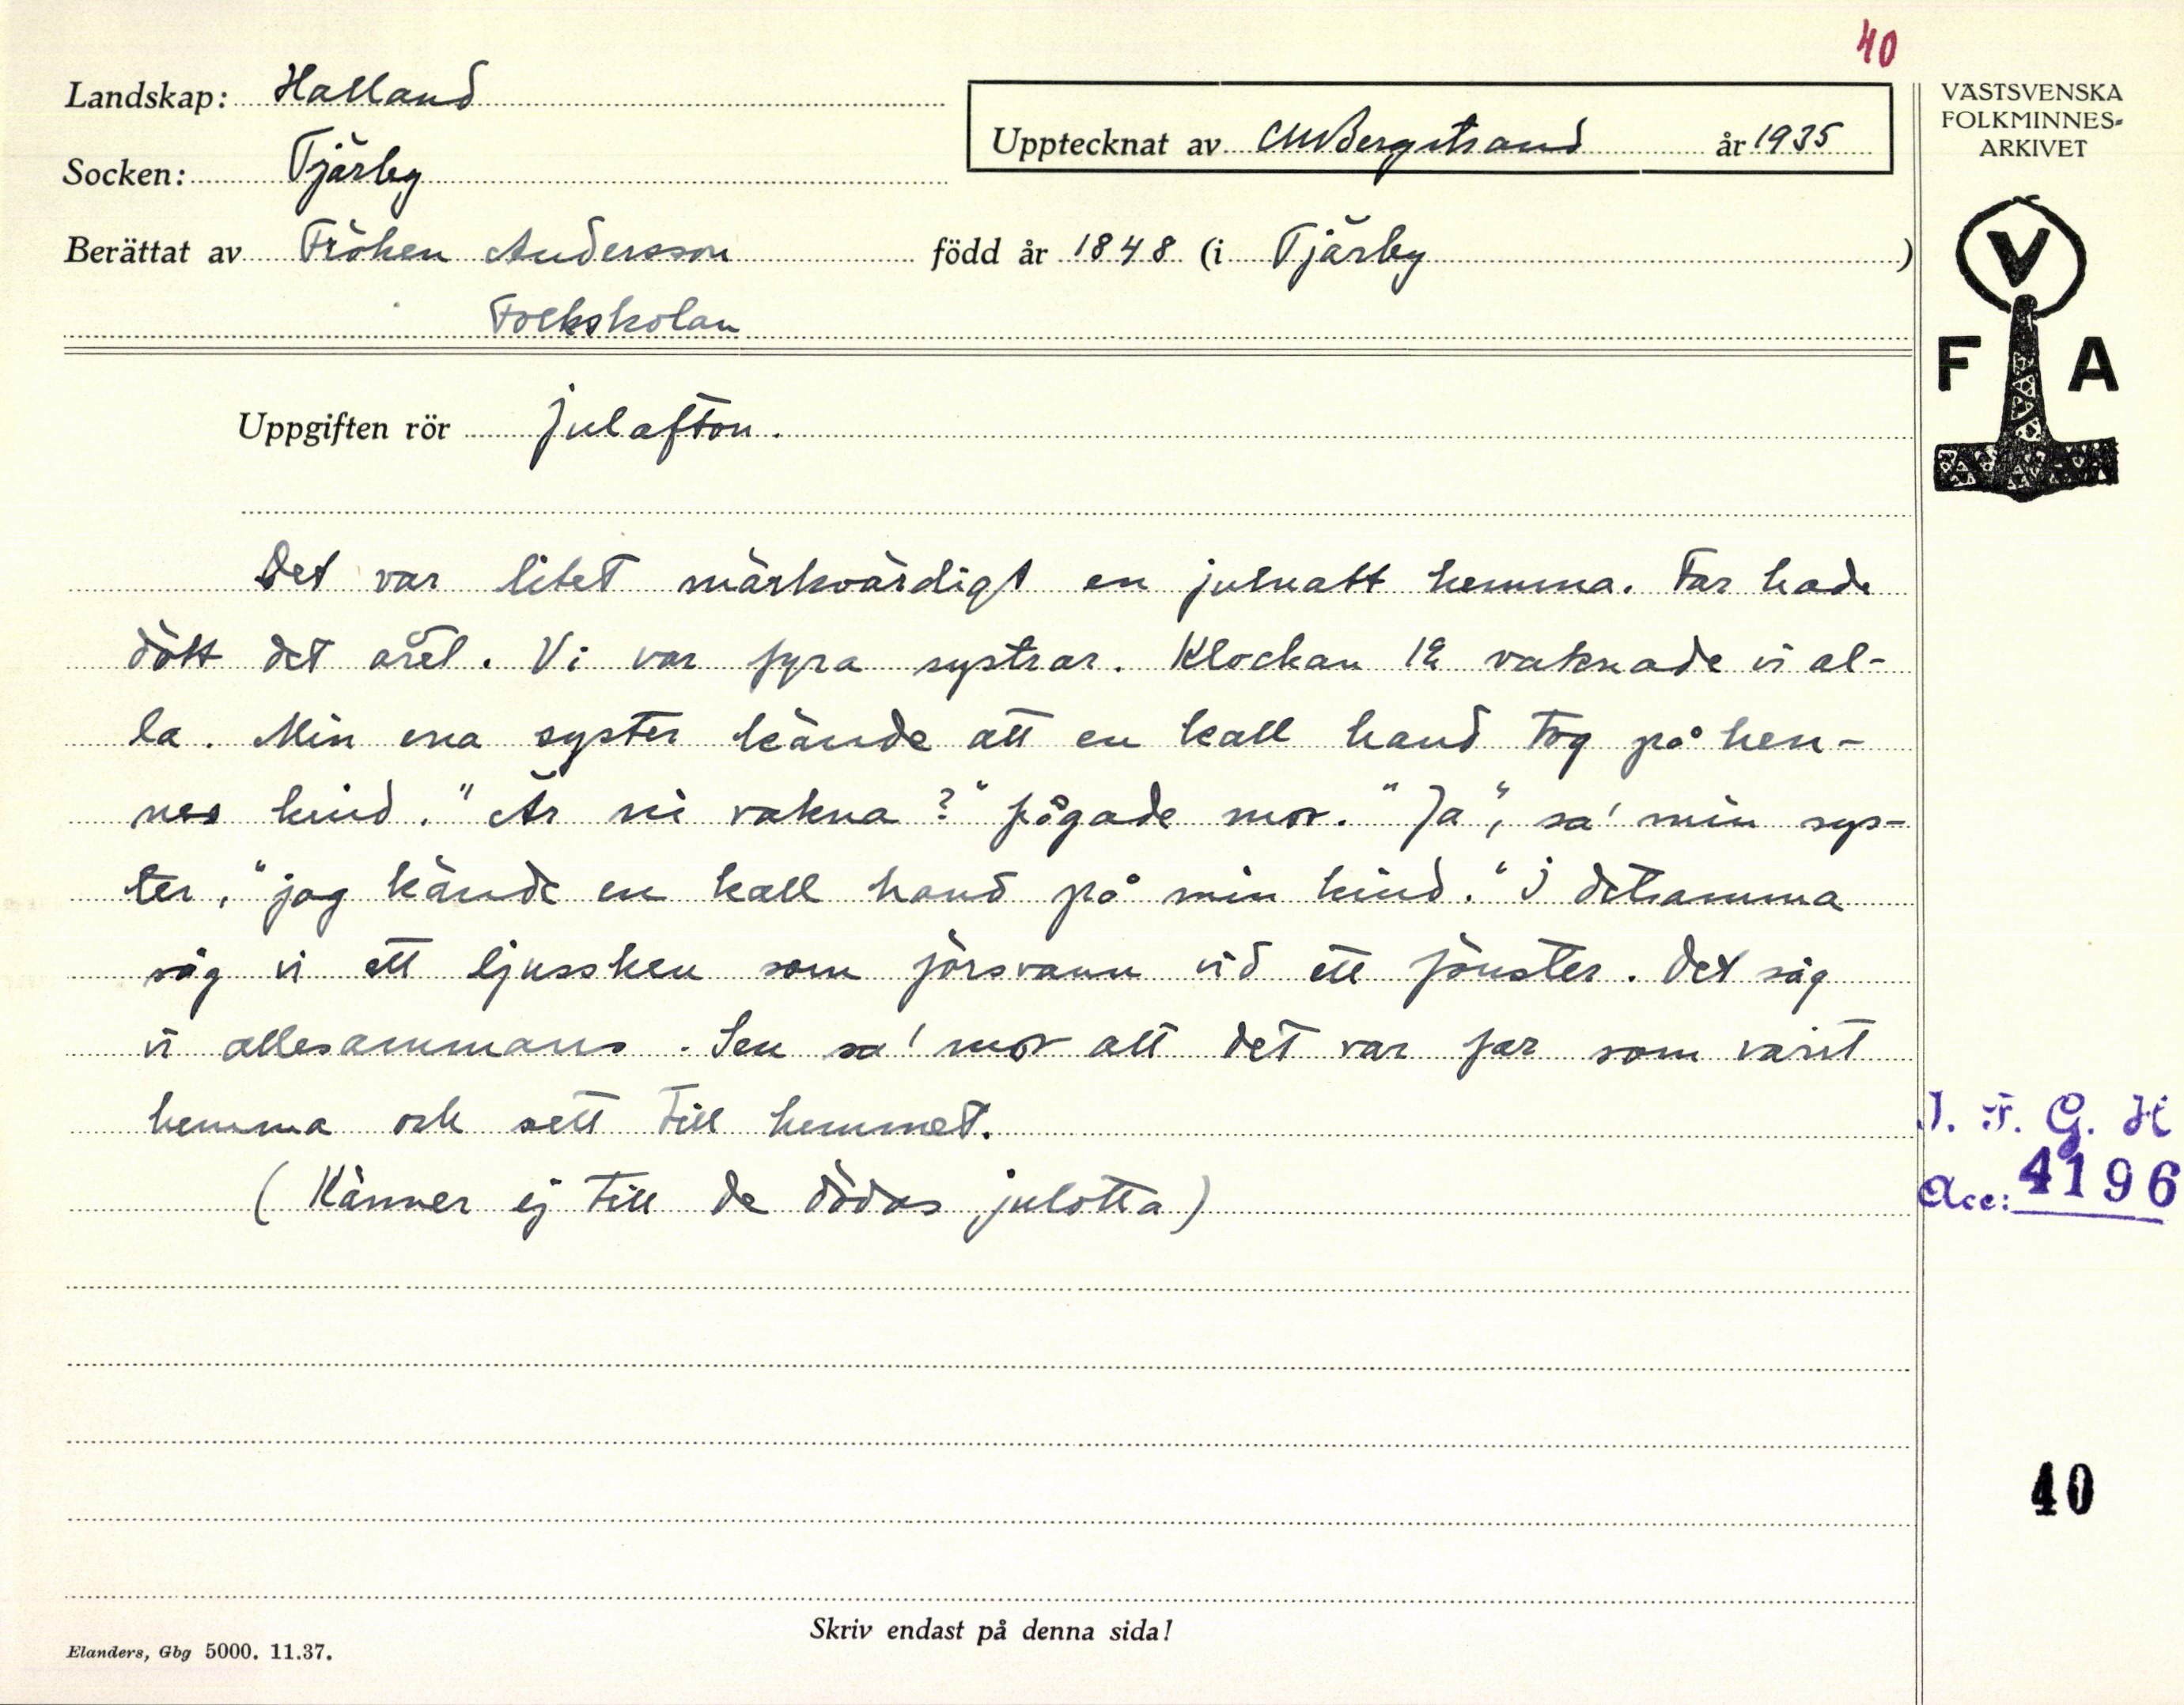 40
Landskap: Halland
Upptecknat av CMBergstrand år 1935
VÄSTSVENSKA
FOLKMINNES-
ARKIVET
Socken: Tjärby
Berättat av Fröken Andersson född år 1848 (i Tjärby)
Folkskolan
V
F A
Uppgiften rör julafton.
Det var litet märkvärdigt en julnatt hemma. Far hade
dött det året. Vi var fyra systrar. Klockan 12 vaknade vi al-
la. Min ena syster kände att en kall hand tog på hen-
nes kind. "Är ni vakna?" frågade mor. "Ja", sa' min sys-
ter, "jag kände en kall hand på min kind." I detsamma
såg vi ett ljussken som försvann vid ett fönster. Det såg
vi allesammans. Sen sa' mor att det var far som varit
hemma och sett till hemmet.
(Känner ej till de dödas julotta)
I. F. G. H
Acc: 4196
40
Skriv endast på denna sida!
Elanders, Gbg 5000. 11.37.